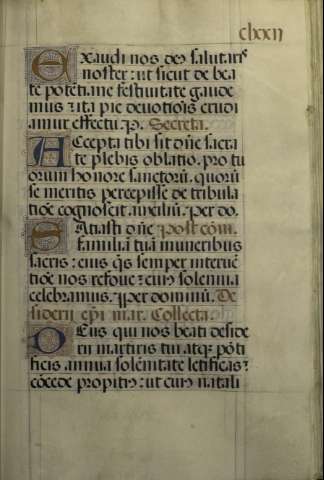 clxxij
Exaudi nos deꝰ salutaris
noster: ut sicut de bea
te potētiane festivitate gaude
mus: ita pie devotiois erudi
amur effectu. ꝑ. Secreta.
Accepta tibi sit dn̄e sacra
te plebis oblatio. pro tu
orum honore sanctorū. quorū
se meritis percepisse de tribula
tiōe cognoscit auxiliū. ꝑer do.
Satiasti dn̄e post cōm.
familiā tuā muneribus
sacris: eius q̄s semper intervē
tiōe nos refove: cuiꝰ solemnia
celebramus. ꝑer dominū. De
siderii ep̄i mar. Collecta.
Deus qui nos beati deside
rii martiris tui atqꝫ pōti
ficis annua solēnitate letificas:
cōcede propitiꝰ: ut cuiꝰ natali